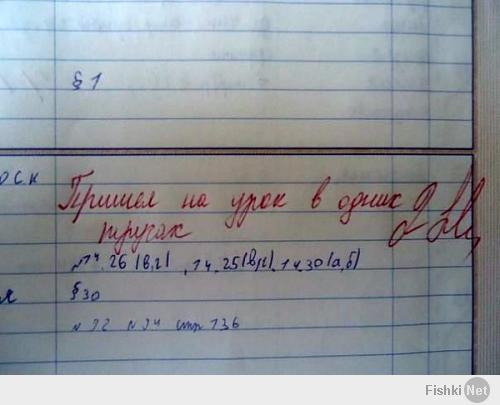 § 1
Пришел на урок в одних
трусах
№14.26(в,г), 14.25(в,г), 14.30(а,б)
§ 30
№ 92 № 94 стр 136
Fishki Net